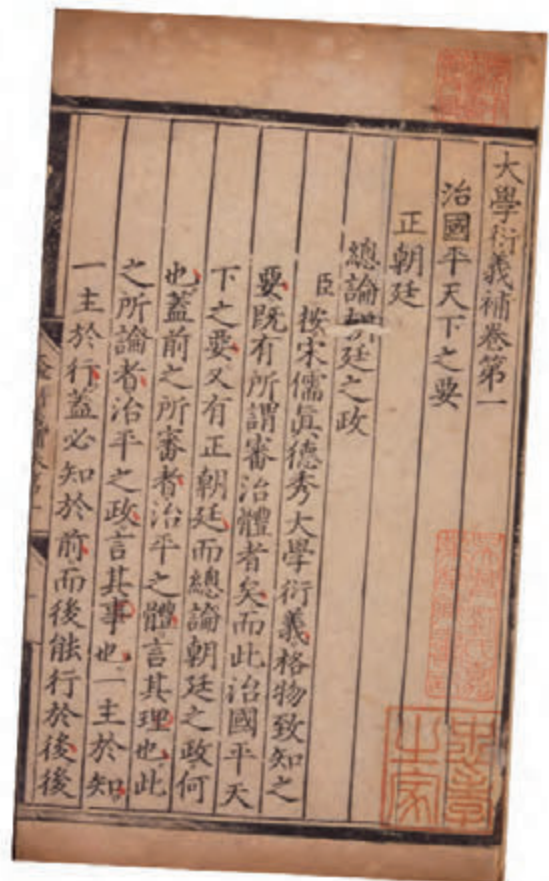 大學衍義補卷第一
治國平天下之要
正朝廷
總論朝廷之政
臣按宋儒眞德秀大學衍義格物致知之
要既有所謂審治體者矣而此治國平天
下之要又有正朝廷而總論朝廷之政何
也蓋前之所審者治平之體言其理也此
之所論者治平之政言其事也一主於知
一主於行蓋必知於前而後能行於後後